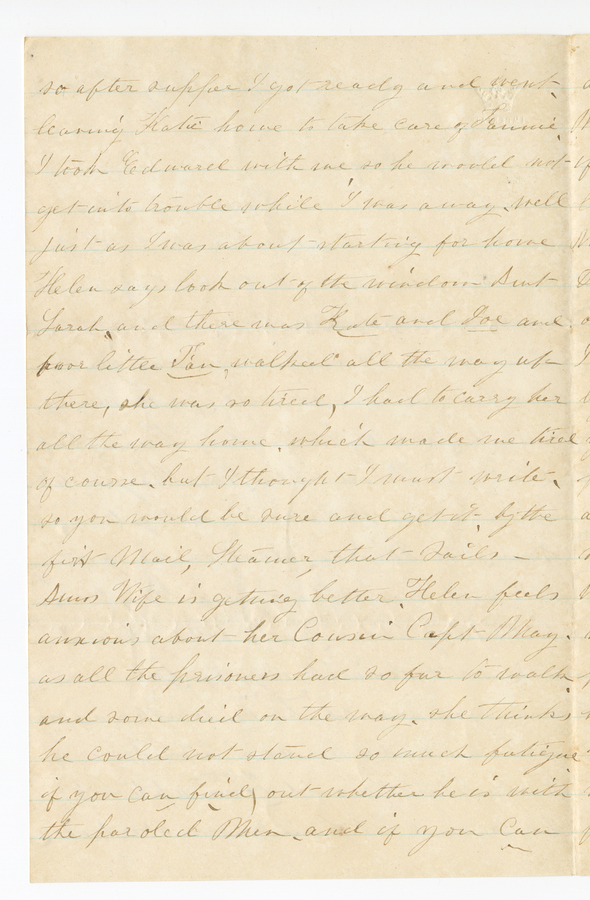 so after suppe I got ready and went
leaving Katie home to take care of Fannie
I took Edward with me so he would not
get into trouble while I was away. well
just as I was about starting for home
Helen says look out of the window Aunt
Sarah, and there was Kate and Joe and
poor little Fan, walked all the way up
there, she was so tired, I had to carry her
all the way home. which made me tired
of course. but I thought I must write.
so you would be sure and get it by the
first Mail, Steamer, that Sails –
Amos Wife is getting better. Helen feels
anxious about her Cousin Capt May.
as all the prisoners had so far to walk
and some died on the way. she thinks
he could not stand so much fatigue
if you can find out whether he is with
the paroled Men. and if you can